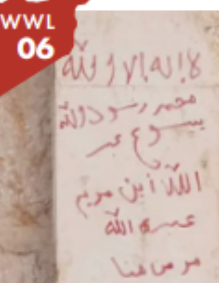 WWL
06
لا اله الا الله
محمد رسول الله
يسوع عبد
الله ابن مريم
عبد الله
مر من هنا